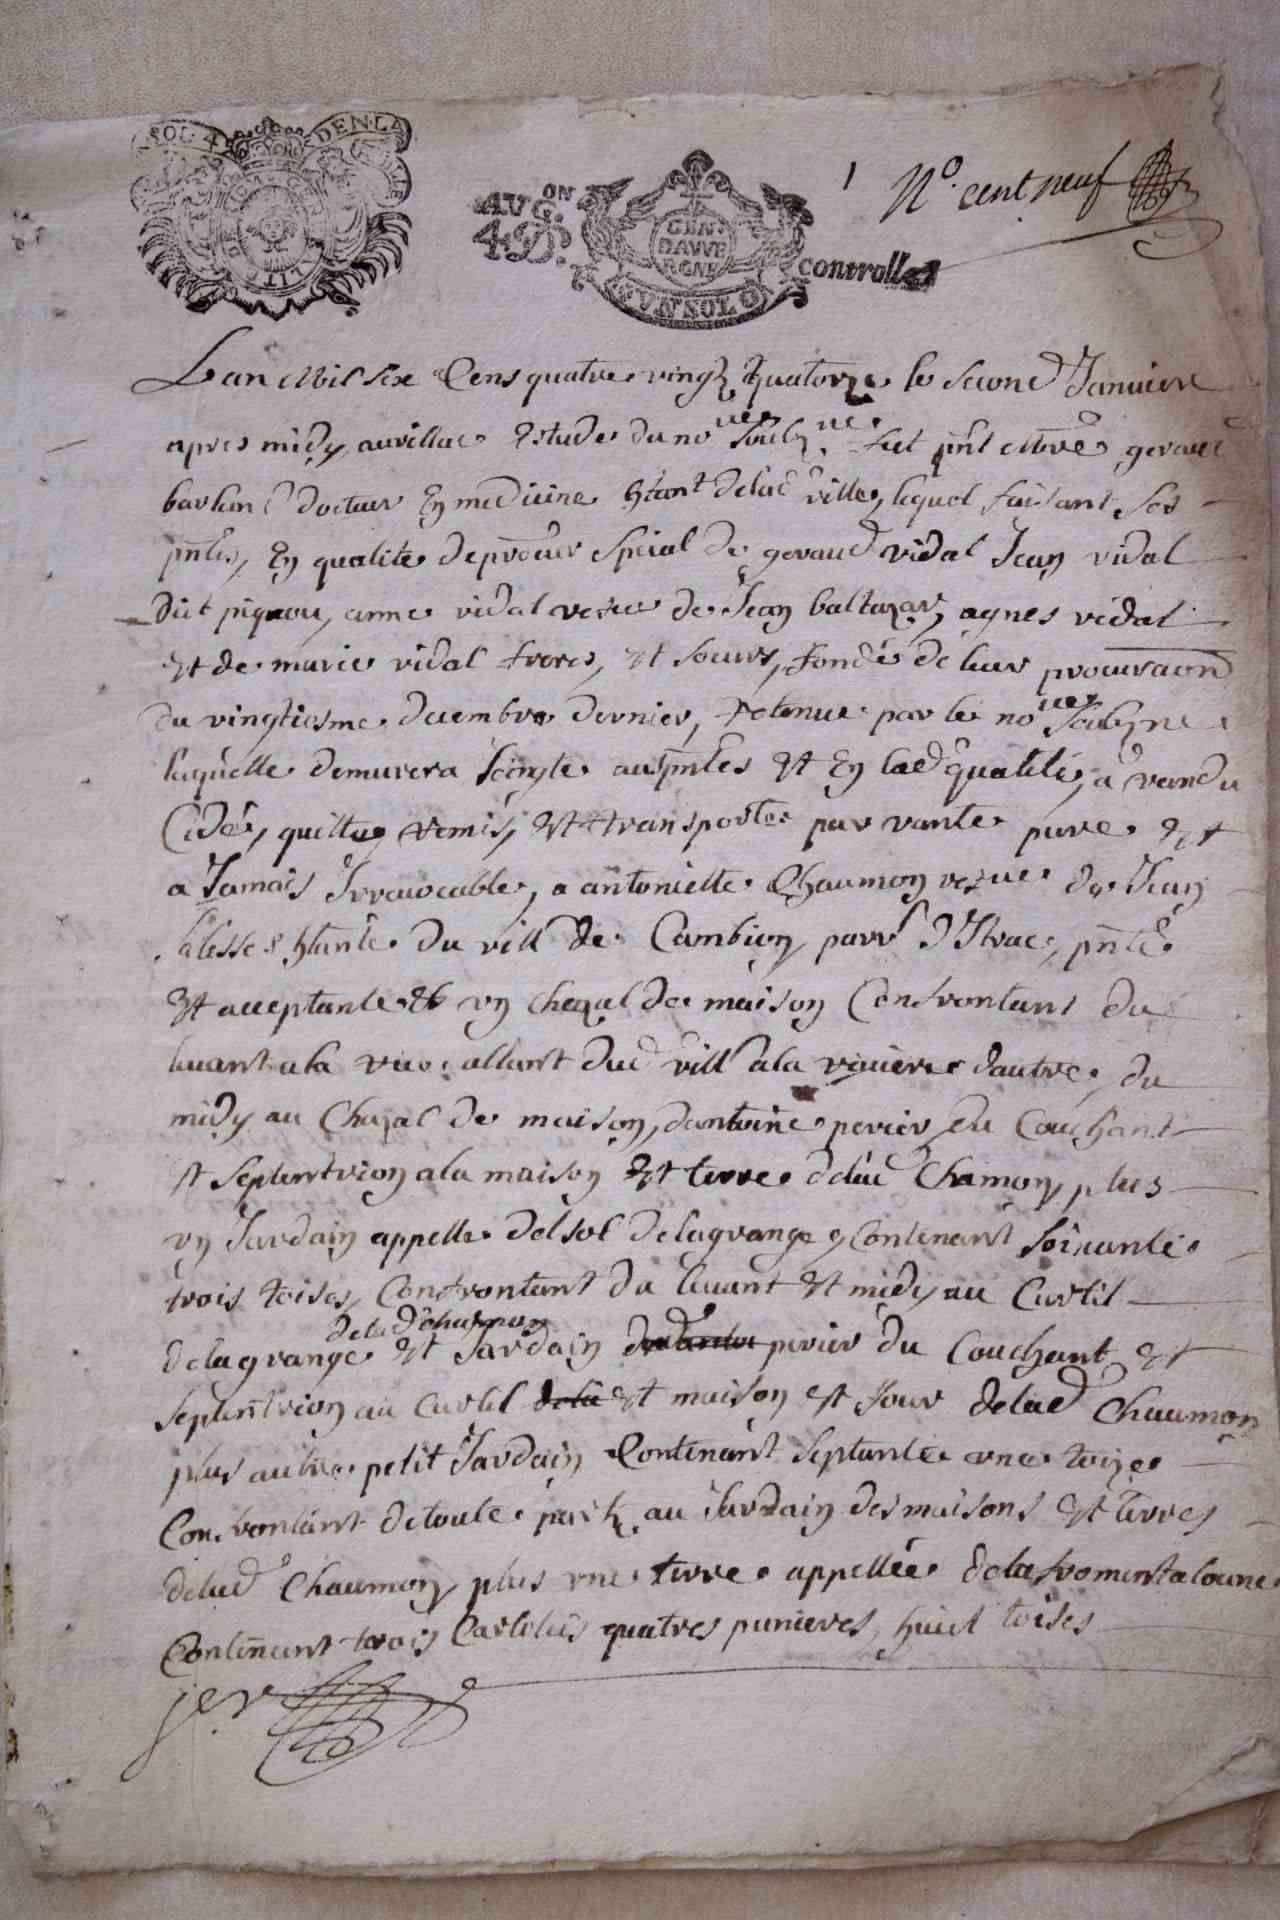 UNSOL 4 DEN LA
AUG.ON
4 D.
GEN DAVVERGNE
UN SOL
controllé
N° cent neuf
Lan Mil six Cens quatre vingtz quatorze le second Janvier
apres midy aurillac Estude du no.re soubz.ne fut pnt Me geraud
barlan docteur En medicine htant delad ville, lequel faisant ses
pntes, En qualite de procur special de geraud vidal Jean vidal
dict pignou, anne vidal vesve de Jean baltazar, agnes vidal
Et de marie vidal freres, Et soeurs, fondé de leur procuraon
du vingtiesme decembre dernier, retenue par le no.re soubzne
laquelle demurera joingte aux pntes Et En lad qualité, a vandu
Cédé, quitte, remis, Et transporte par vante pure Et
a Jamais Irrevocable, a antoniette Chaumon vesve de Jean
htante du vill de Cambion parr d'Itrac, pnte
Et acceptante Es un chezal de maison Confrontant du
levant a la rue allant dud vill a la riviere dautre, du
midy au Chezal de maison, dantoine perier du Couchant
Et Septentrion a la maison Et terre delad Chamon, plus
un Jardain appelle del sol de la grange, Contenant soixante
trois toises, Confrontant du levant Et midy au Curtil
de la d chamon
de la grange Et Jardain perier du Couchant Et
Septentrion au Curtil dela Et maison Et four delad Chaumon
plus autre petit Jardain Contenant septante une toize
Confrontant de toute partz au Jardain des maisons Et terres
delad Chaumon, plus une terre appellée de la fromentaloune
Contenant trois Cartelés quatres punieres, huict toises